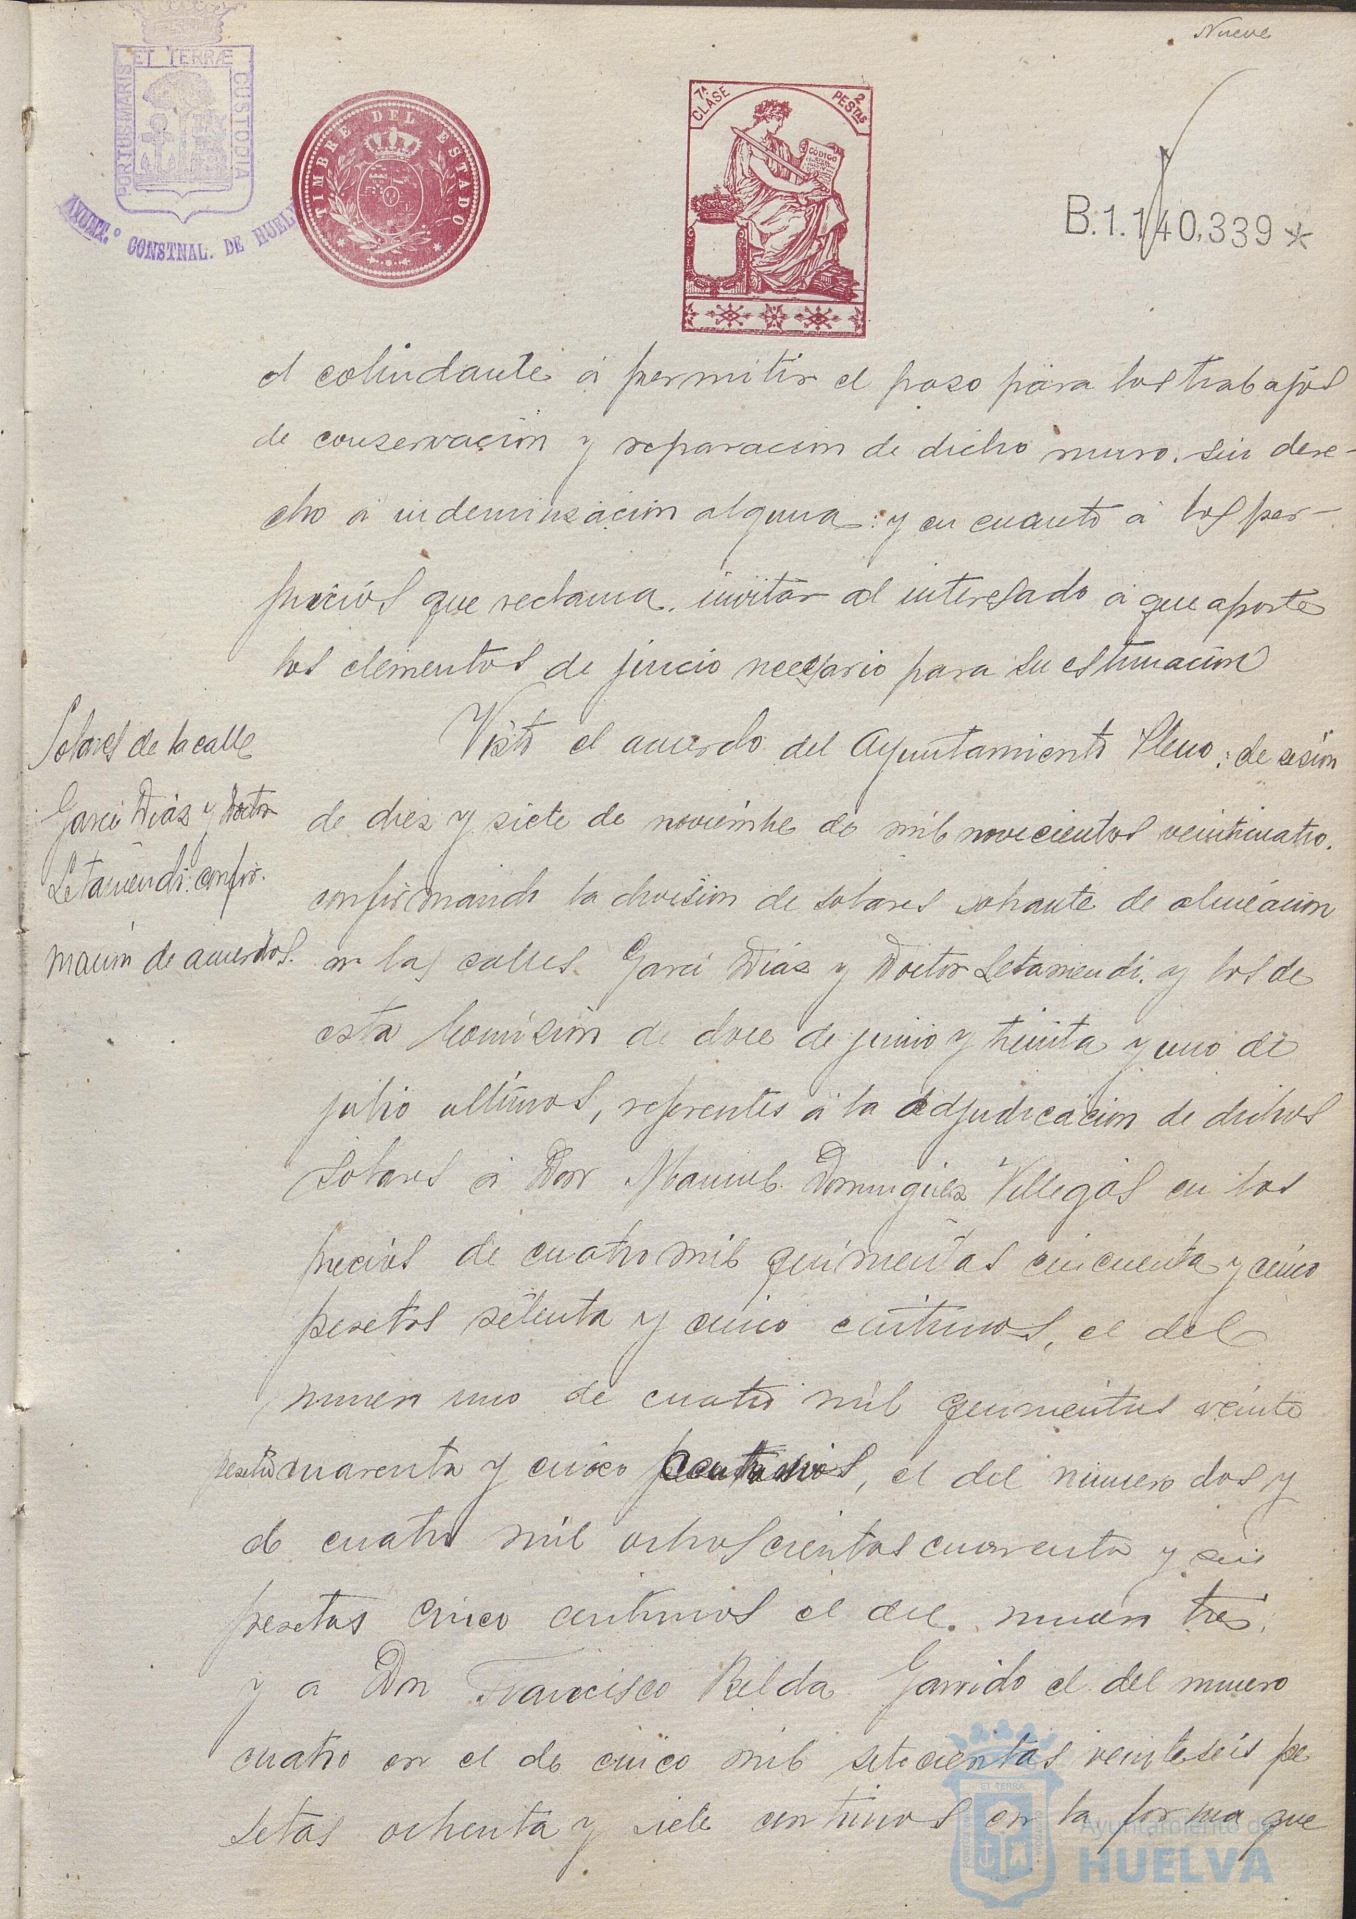 Nueve
ET TERRÆ
PORTUS MARIS
CUSTODIA
AYUMT.º CONSTNAL. DE HUELV
TIMBRE DEL ESTADO
7ª CLASE
2 PESTAS
CÓDIGO
B.1.140,339*
el colindante á permitir el paso para los trabajos
de conservación y reparacion de dicho muro, sin dere-
cho á indemnización alguna: y en cuanto á los per-
juicios que reclama, invitar al interesado á que aporte
los elementos de juicio necesario para su estimación
Solares de la calle
Garci Diaz y Doctor
Letamendi: confir-
mación de acuerdos.
Visto el acuerdo del Ayuntamiento Pleno, de sesión
de diez y siete de noviembre de mil novecientos veinticuatro,
confirmando la division de solares sobrante de alineacion
en las calles Garci Diaz y Doctor Letamendi, y los de
esta Comisión de doce de junio y treinta y uno de
julio ultimos, referentes á la adjudicacion de dichos
solares á Don Manuel Dominguez Villegas en los
precios de cuatro mil quinientas cincuenta y cinco
pesetas setenta y cinco centimos, el del
numero uno de cuatro mil quinientas veinte
pesetas cuarenta y cinco centimos, el del numero dos y
de cuatro mil ochoscientas cuarenta y seis
pesetas cinco centimos el del numero tres,
y a Don Francisco Belda Garrido el del numero
cuatro en el de cinco mil setecientas veinteseis pe
setas ochenta y siete centimos en la forma que
Ayuntamiento de
HUELVA